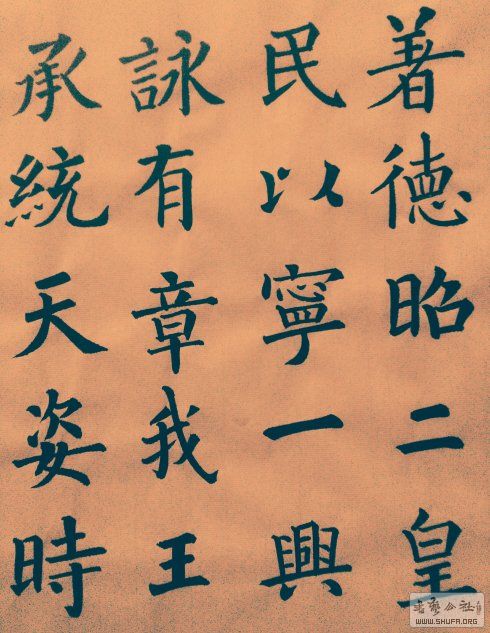 著德昭二皇
民以寧一興
詠有章我王
承統天姿時
WWW.SHUFA.ORG